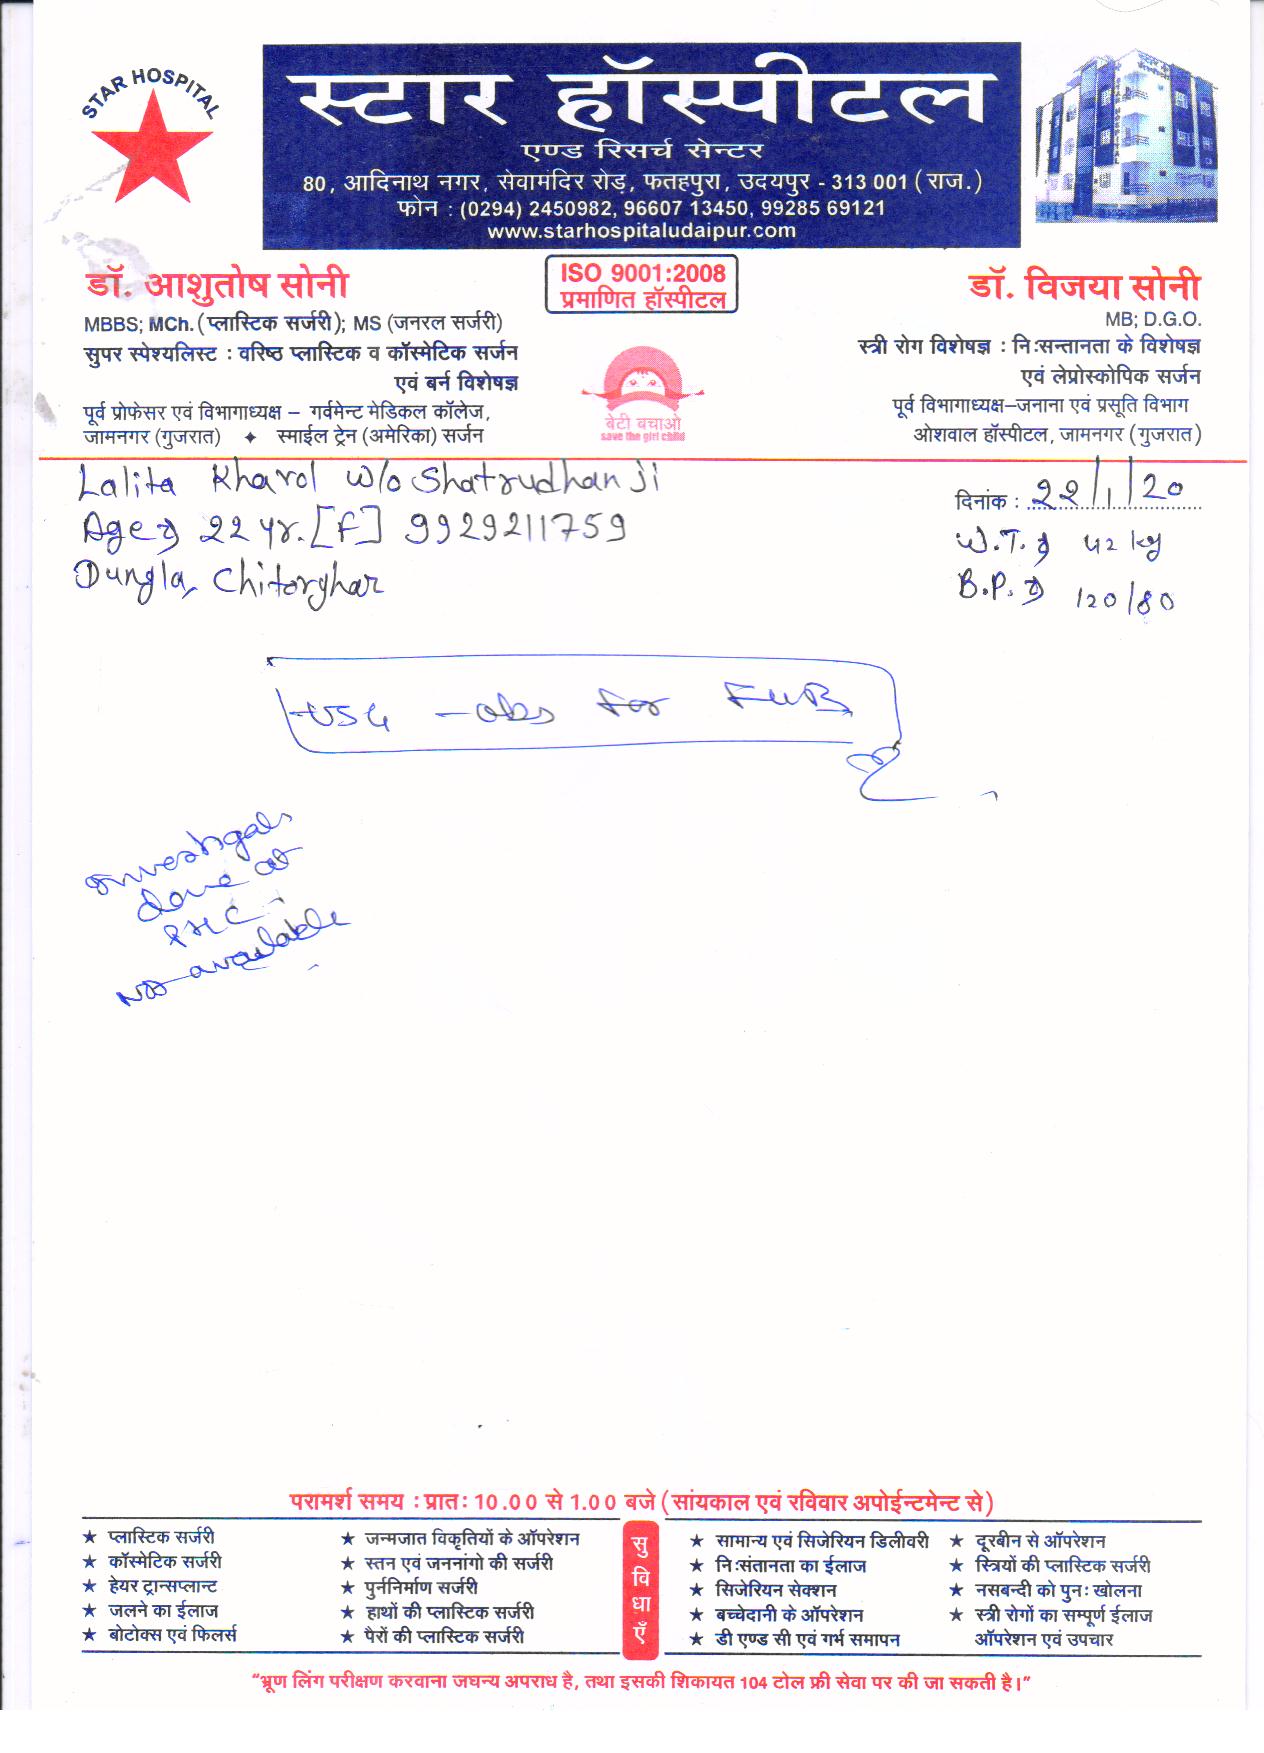 STAR HOSPITAL
स्टार हॉस्पीटल
एण्ड रिसर्च सेन्टर
80, आदिनाथ नगर, सेवामंदिर रोड़, फतहपुरा, उदयपुर - 313 001 (राज.)
फोन : (0294) 2450982, 96607 13450, 99285 69121
www.starhospitaludaipur.com
ISO 9001:2008
प्रमाणित हॉस्पीटल
डॉ. आशुतोष सोनी
MBBS; MCh. (प्लास्टिक सर्जरी); MS (जनरल सर्जरी)
सुपर स्पेश्यलिस्ट : वरिष्ठ प्लास्टिक व कॉस्मेटिक सर्जन
एवं बर्न विशेषज्ञ
पूर्व प्रोफेसर एवं विभागाध्यक्ष – गर्वमेन्ट मेडिकल कॉलेज,
जामनगर (गुजरात) ✦ स्माईल ट्रेन (अमेरिका) सर्जन
बेटी बचाओ
save the girl child
डॉ. विजया सोनी
MB; D.G.O.
स्त्री रोग विशेषज्ञ : नि:सन्तानता के विशेषज्ञ
एवं लेप्रोस्कोपिक सर्जन
पूर्व विभागाध्यक्ष–जनाना एवं प्रसूति विभाग
ओशवाल हॉस्पीटल, जामनगर (गुजरात)
Lalita Kharol w/o Shatrudhan Ji
Age → 22 yr. [F] 9929211759
Dungla, Chitorghar
दिनांक : 22/1/20
W.T. → 42 kg
B.P. → 120/80
USG - obs for FWB
Investigatns
done at
PHC
Not available
परामर्श समय : प्रात: 10.00 से 1.00 बजे (सांयकाल एवं रविवार अपोईन्टमेन्ट से)
★ प्लास्टिक सर्जरी
★ कॉस्मेटिक सर्जरी
★ हेयर ट्रान्सप्लान्ट
★ जलने का ईलाज
★ बोटोक्स एवं फिलर्स
★ जन्मजात विकृतियों के ऑपरेशन
★ स्तन एवं जननांगो की सर्जरी
★ पुर्ननिर्माण सर्जरी
★ हाथों की प्लास्टिक सर्जरी
★ पैरों की प्लास्टिक सर्जरी
सुविधाएँ
★ सामान्य एवं सिजेरियन डिलीवरी
★ नि:संतानता का ईलाज
★ सिजेरियन सेक्शन
★ बच्चेदानी के ऑपरेशन
★ डी एण्ड सी एवं गर्भ समापन
★ दूरबीन से ऑपरेशन
★ स्त्रियों की प्लास्टिक सर्जरी
★ नसबन्दी को पुन: खोलना
★ स्त्री रोगों का सम्पूर्ण ईलाज
ऑपरेशन एवं उपचार
"भ्रूण लिंग परीक्षण करवाना जघन्य अपराध है, तथा इसकी शिकायत 104 टोल फ्री सेवा पर की जा सकती है।"